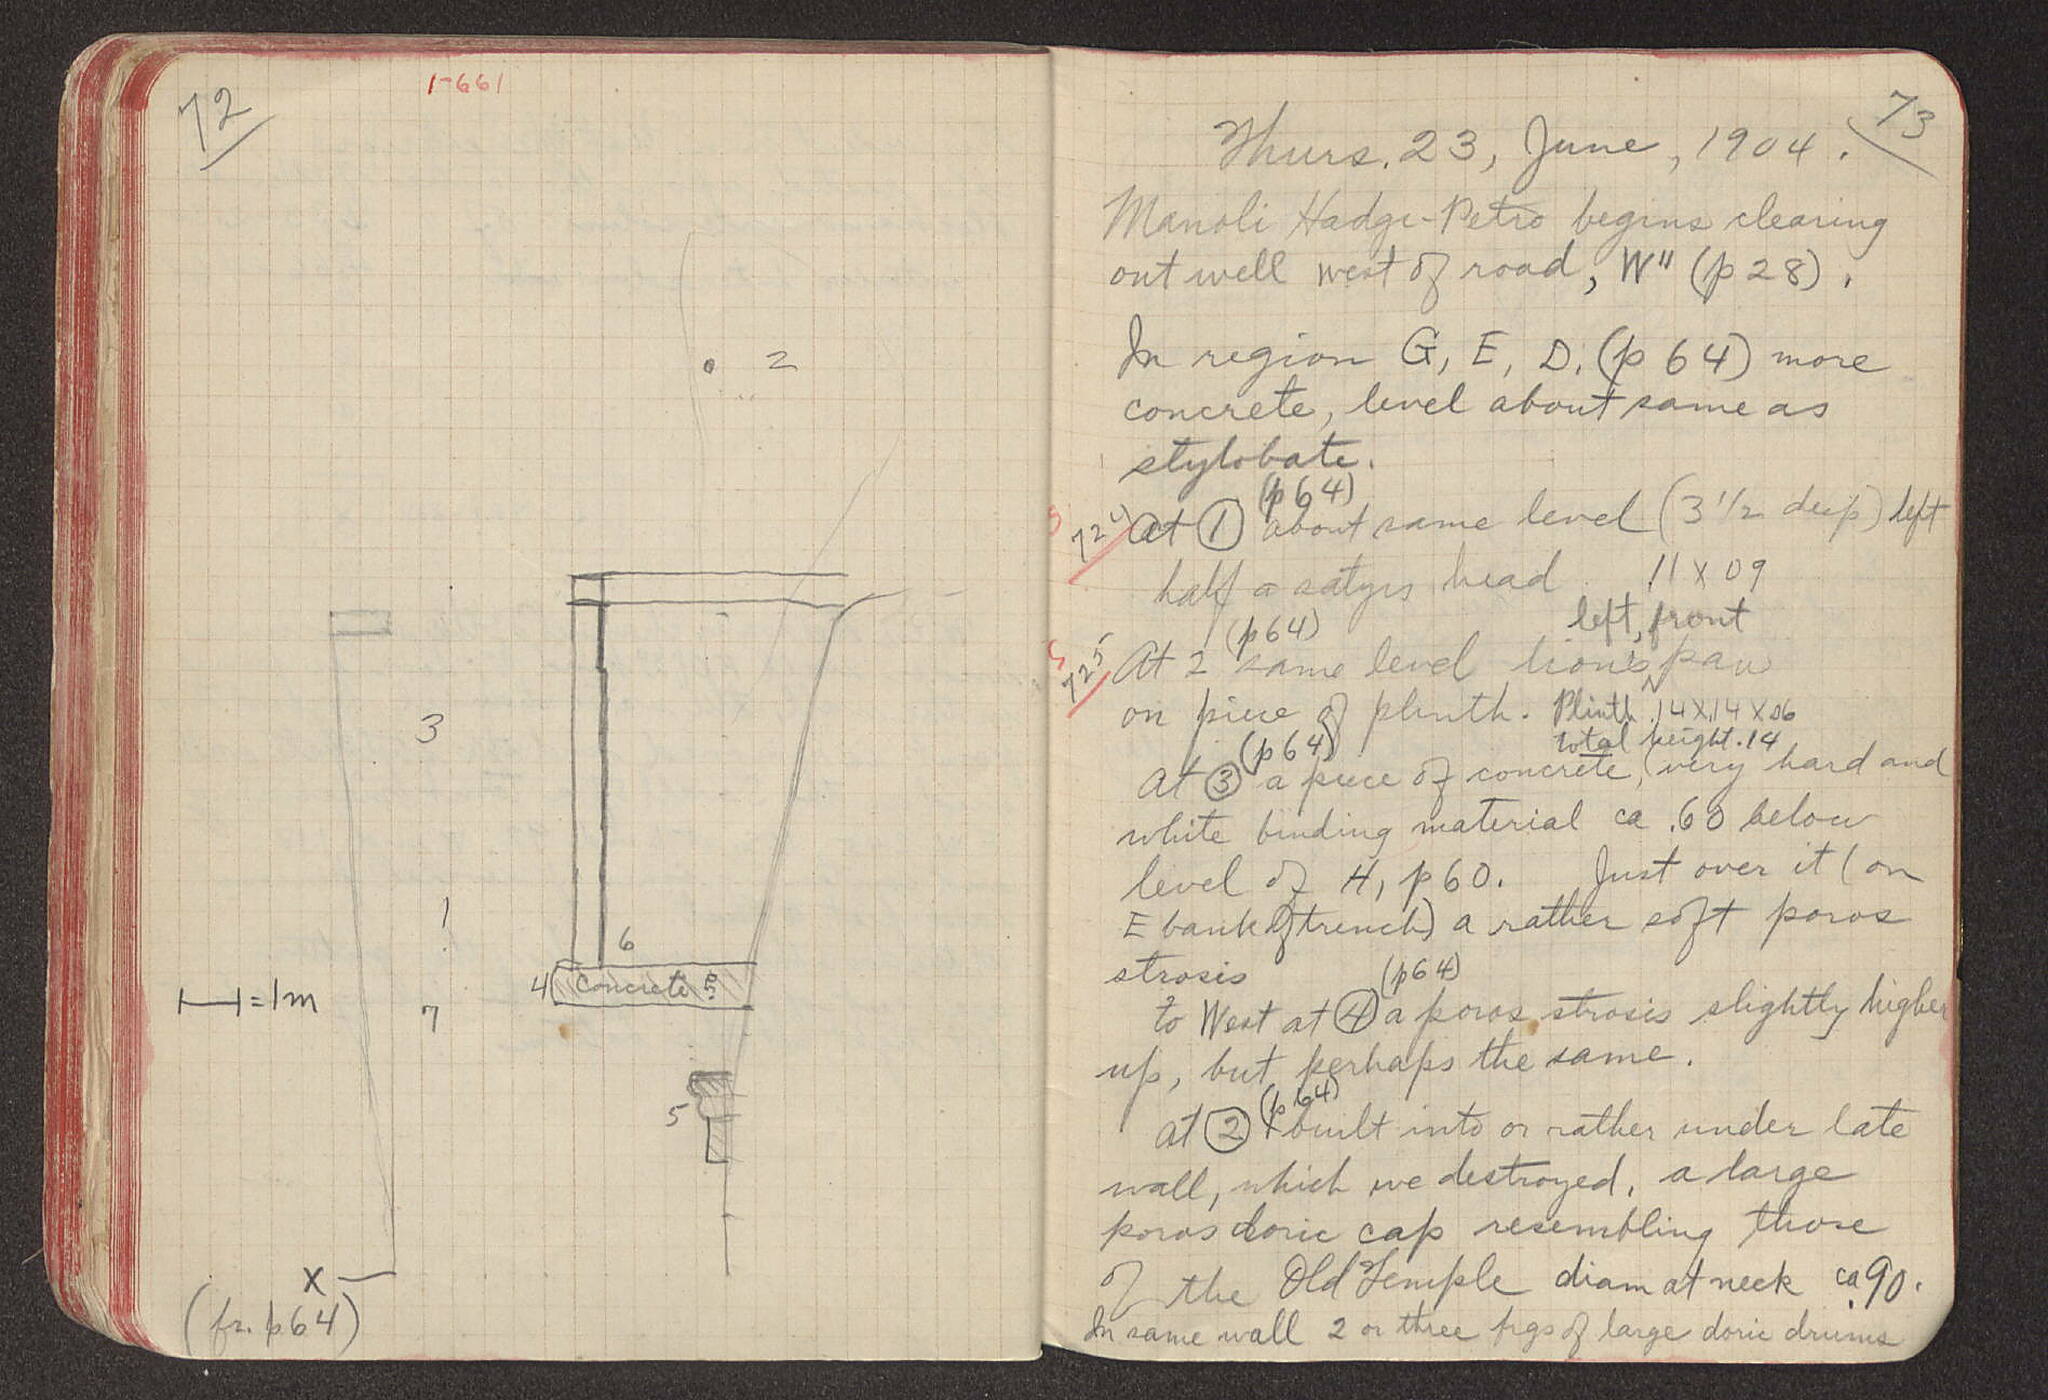 72
1-661
2
3
1
6
4 Concrete 5
⊢⊣ = 1m
7
5
X
(fr. p 64)
73
Thurs. 23, June, 1904.
Manoli Hadgi-Petro begins clearing
out well west of road, W" (p 28).
In region G, E, D. (p 64) more
concrete, level about same as
stylobate.
(p 64)
724 At ① about same level (3 1/2 deep) left
half a satyrs head .11 X 09
(p 64) left, front
725 At 2 same level lion's paw
on piece of plinth. Plinth .14 X .14 X 06
total height .14
(p 64)
At ③ a piece of concrete, (very hard and
white binding material ca .60 below
level of H, p 60. Just over it (on
E bank of trench) a rather soft poros
strosis
(p 64)
to West at ④ a poros strosis slightly higher
up, but perhaps the same.
(p 64)
At ② built into or rather under late
wall, which we destroyed, a large
poros doric cap resembling those
of the Old Temple diam at neck ca .90.
In same wall 2 or three frgs of large doric drums